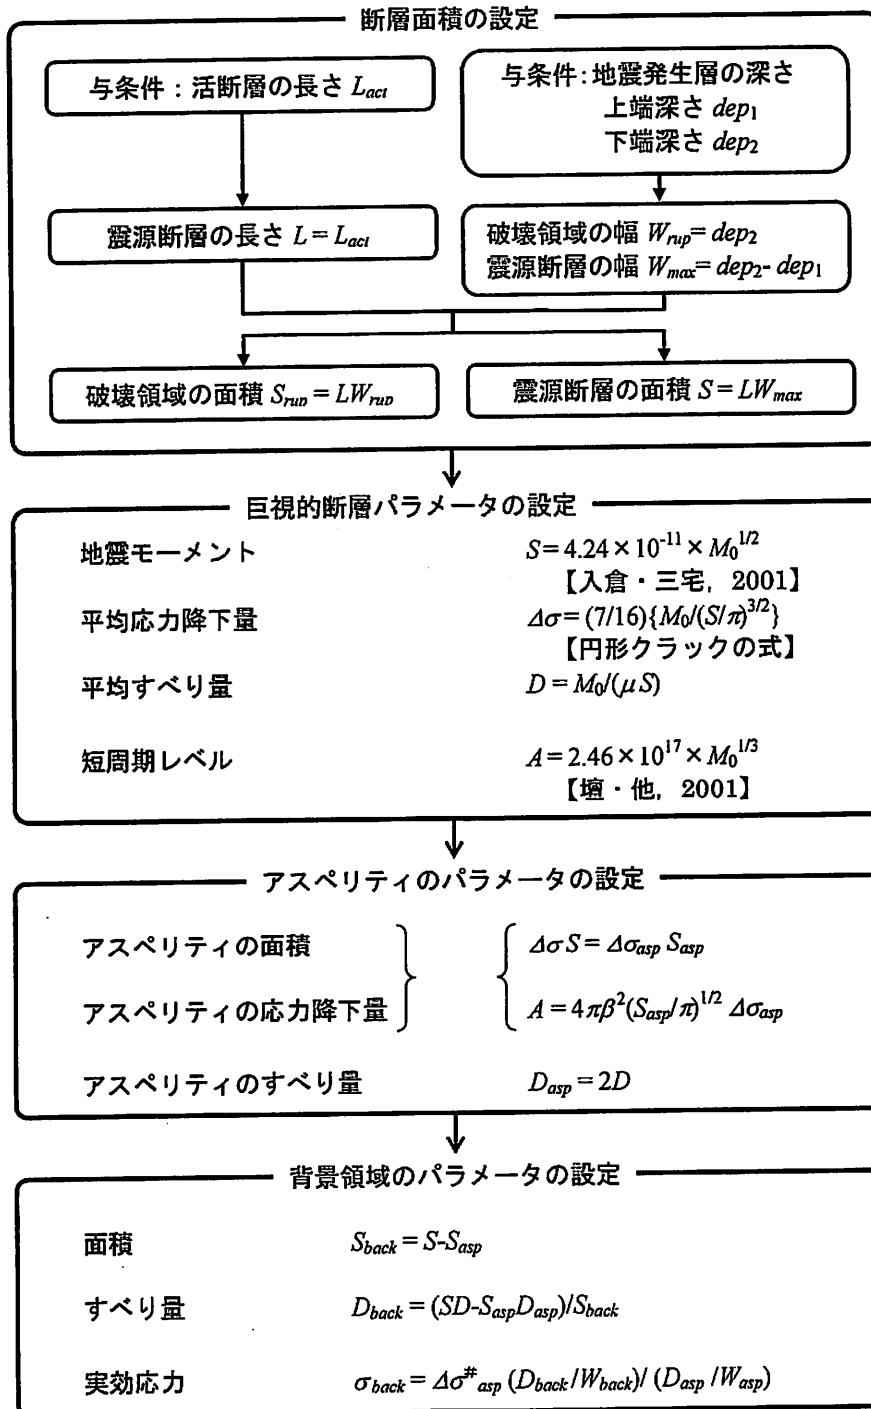 断層面積の設定
与条件：活断層の長さ L_act
与条件：地震発生層の深さ
上端深さ dep₁
下端深さ dep₂
震源断層の長さ L = L_act
破壊領域の幅 W_rup = dep₂
震源断層の幅 W_max = dep₂- dep₁
破壊領域の面積 S_rup = LW_rup
震源断層の面積 S = LW_max
巨視的断層パラメータの設定
地震モーメント S = 4.24×10^-11 × M₀^1/2
【入倉・三宅, 2001】
平均応力降下量 Δσ = (7/16){M₀/(S/π)^3/2}
【円形クラックの式】
平均すべり量 D = M₀/(μS)
短周期レベル A = 2.46×10^17 × M₀^1/3
【壇・他, 2001】
アスペリティのパラメータの設定
アスペリティの面積 Δσ S = Δσ_asp S_asp
アスペリティの応力降下量 A = 4πβ²(S_asp/π)^1/2 Δσ_asp
アスペリティのすべり量 D_asp = 2D
背景領域のパラメータの設定
面積 S_back = S-S_asp
すべり量 D_back = (SD-S_aspD_asp)/S_back
実効応力 σ_back = Δσ^#_asp (D_back/W_back)/ (D_asp /W_asp)